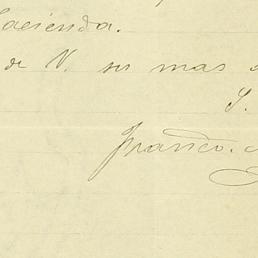 Hacienda.
de V. su mas
S.
Franco.